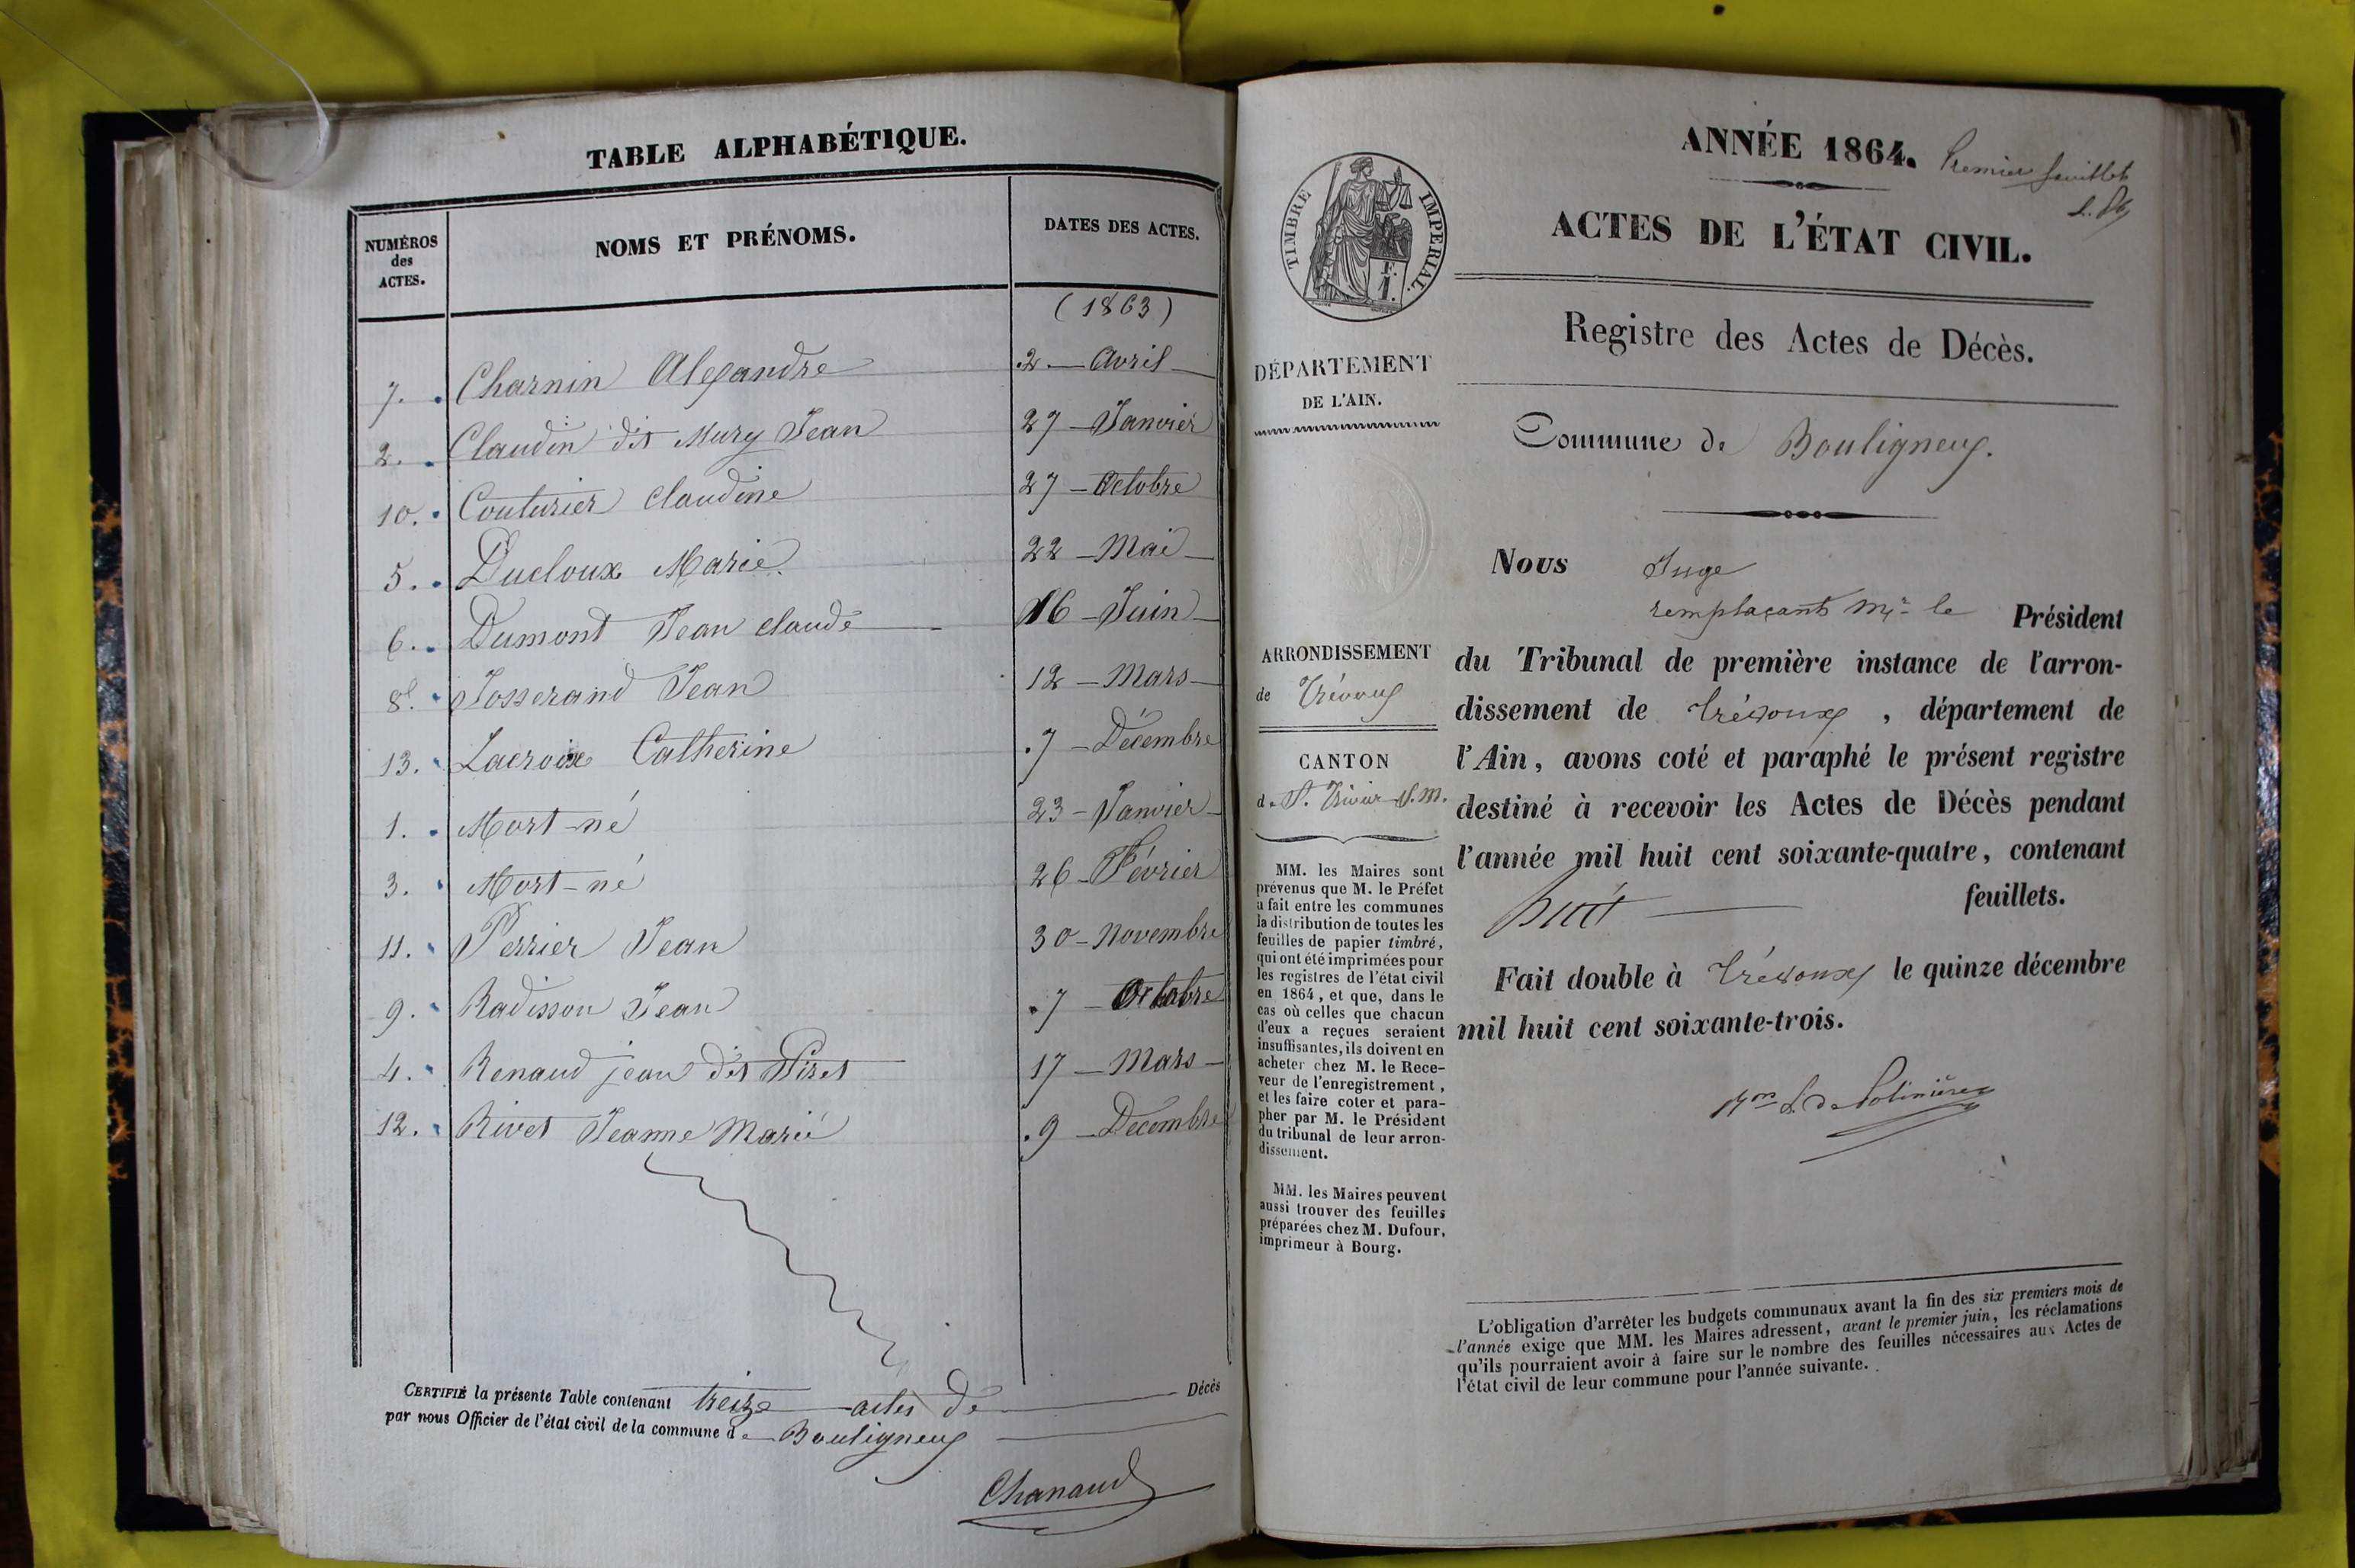 TABLE ALPHABÉTIQUE.
NUMÉROS des ACTES.
NOMS ET PRÉNOMS.
DATES DES ACTES.
(1863)
7. Charnin Alexandre 2 Avril
2. Claudin dit Mury Jean 27 Janvier
10. Couturier Claudine 27 Octobre
5. Ducloux Marie 22 Mai
6. Dumont Jean Claude 16 Juin
8. Josserand Jean 12 Mars
13. Lacroix Catherine 7 Décembre
1. Mort-né 23 Janvier
3. Mort-né 26 Février
11. Perrier Jean 30 Novembre
9. Radisson Jean 7 Octobre
4. Renaud jean dit Piret 17 Mars
12. Rivet Jeanne Marie 9 Décembre
CERTIFIÉ la présente Table contenant treize actes de Décès
par nous Officier de l'état civil de la commune de Bouligneux
Chanaud
ANNÉE 1864.
Premier feuillet
TIMBRE IMPERIAL.
F.
1.
ACTES DE L'ÉTAT CIVIL.
Registre des Actes de Décès.
DÉPARTEMENT
DE L'AIN.
Commune de Bouligneux.
Nous Juge
remplaçant Mr le Président
ARRONDISSEMENT
de Trévoux
CANTON
de St. Trivier S.M.
MM. les Maires sont
prévenus que M. le Préfet
a fait entre les communes
la distribution de toutes les
feuilles de papier timbré,
qui ont été imprimées pour
les registres de l'état civil
en 1864, et que, dans le
cas où celles que chacun
d'eux a reçues seraient
insuffisantes, ils doivent en
acheter chez M. le Rece-
veur de l'enregistrement,
et les faire coter et para-
pher par M. le Président
du tribunal de leur arron-
dissement.
MM. les Maires peuvent
aussi trouver des feuilles
préparées chez M. Dufour,
imprimeur à Bourg.
du Tribunal de première instance de l'arron-
dissement de Trévoux, département de
l'Ain, avons coté et paraphé le présent registre
destiné à recevoir les Actes de Décès pendant
l'année mil huit cent soixante-quatre, contenant
huit feuillets.
Fait double à Trévoux le quinze décembre
mil huit cent soixante-trois.
L'obligation d'arrêter les budgets communaux avant la fin des six premiers mois de
l'année exige que MM. les Maires adressent, avant le premier juin, les réclamations
qu'ils pourraient avoir à faire sur le nombre des feuilles nécessaires aux Actes de
l'état civil de leur commune pour l'année suivante.